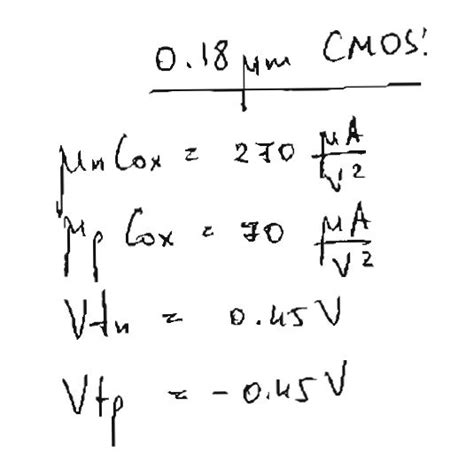 0.18 μm CMOS!
μnCox = 270 μA/V²
μpCox = 70 μA/V²
Vtn = 0.45 V
Vtp = -0.45 V